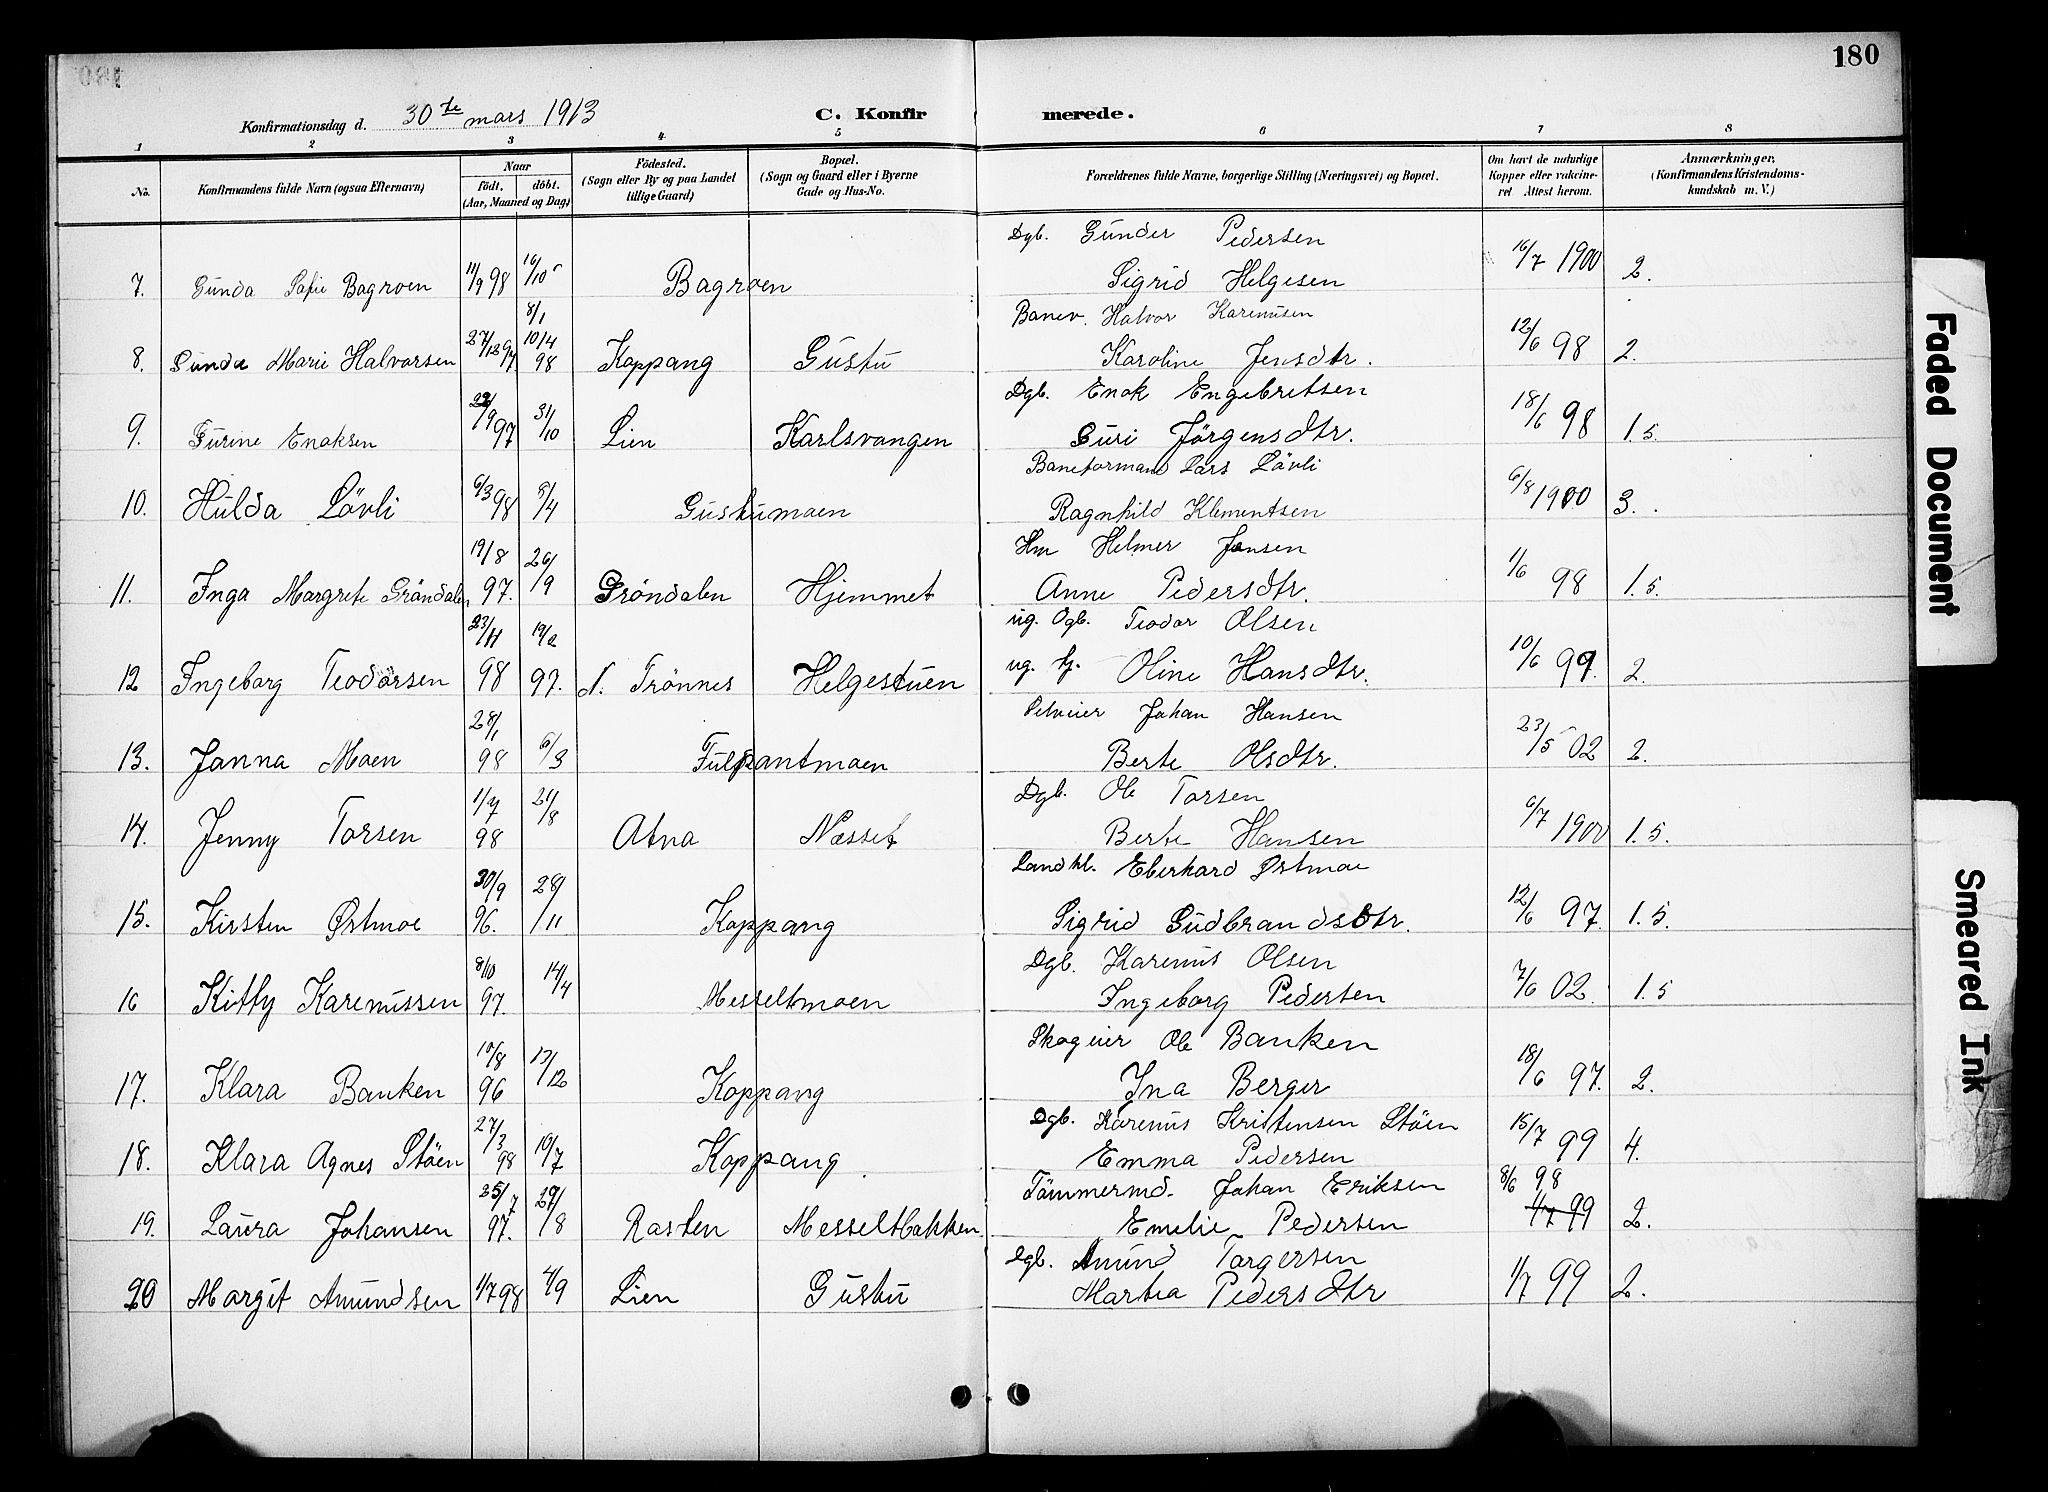 180
Konfirmationsdag d. 30te mars 1913
C. Konfirmerede.
1 2 3 4 5 6 7 8
No. Konfirmandens fulde Navn (ogsaa Efternavn) Naar født, døbt. (Aar, Maaned og Dag) Fødested. (Sogn eller By og paa Landet tillige Gaard) Bopæl. (Sogn og Gaard eller i Byerne Gade og Hus-No. Forældrenes fulde Navne, borgerlige Stilling (Næringsvei) og Bopæl. Om havt de naturlige Kopper eller vaccineret Attest herom. Anmærkninger, (Konfirmandens Kristendomskundskab m. V.)
Dgb. Gunder Pedersen
7. Gunda Sofie Bagroen 11/9 98 16/10 Bagroen Sigrid Helgesen 16/7 1900 2.
8/1
Banev. Halvor Karenusen
8. Gunda Marie Halvorsen 27/12 97 10/4 98 Koppang Gustu Karoline Jensdtr. 12/6 98 2.
Dgb. Enok Engebretsen
9. Gurine Enoksen 22/9 97 31/10 Lien Karlsvangen Guri Jörgensdtr. 18/6 98 1.5.
Baneformand Lars Lövli
10. Hulda Lövli 6/3 98 5/4 Gustumoen Ragnhild Klementsen 6/8 1900 3.
Hm Helmer Jensen
11. Inga Margrete Gröndalen 19/8 97. 26/9 Gröndalen Hjemmet Anne Pedersdtr. 1/6 98 1.5.
ug. Ogb. Teodor Olsen
12 Ingeborg Teodorsen 23/11 98 19/2 97. N. Trönnes Helgestuen ug. Oline Hansdtr. 10/6 99. 2.
Selveier Johan Hansen
13. Janna Moen 28/1 98 6/3 Fulpantmoen Berte Olsdtr. 23/5 02 2.
Dgb. Ole Torsen
14. Jenny Torsen 1/7 98 21/8 Atna Næsset Berte Hansen 6/7 1900 1.5.
Landhl. Eberhard Østmoe
15. Kirsten Østmoe 30/9 96. 28/11 Koppang Sigrid Gudbrandsdtr. 12/6 97. 1.5.
Dgb. Karenus Olsen
16 Kitty Karenussen 8/10 97. 14/4 Messeltmoen Ingeborg Pedersen 7/6 02. 1.5
Skogeier Ole Banken
17. Klara Banken 10/8 96 13/12 Koppang Ina Berger 18/6 97. 2.
Dgb. Karenus Kristensen Stöen
18. Klara Agnes Stöen 27/3 98 10/7 Koppang Emma Pedersen 15/7 99 4.
Tömmermd. Johan Eriksen 8/6 98
19. Laura Johansen 25/7 97. 29/8 Rasten Messeltbakken Emelie Pedersen 1/7 99 2.
Dgb. Amund Torgersen
20 Margit Amundsen 1/7 98 4/9 Lien Gustu Martea Pedersdtr 1/7 99 2.
Faded Document
Smeared Ink